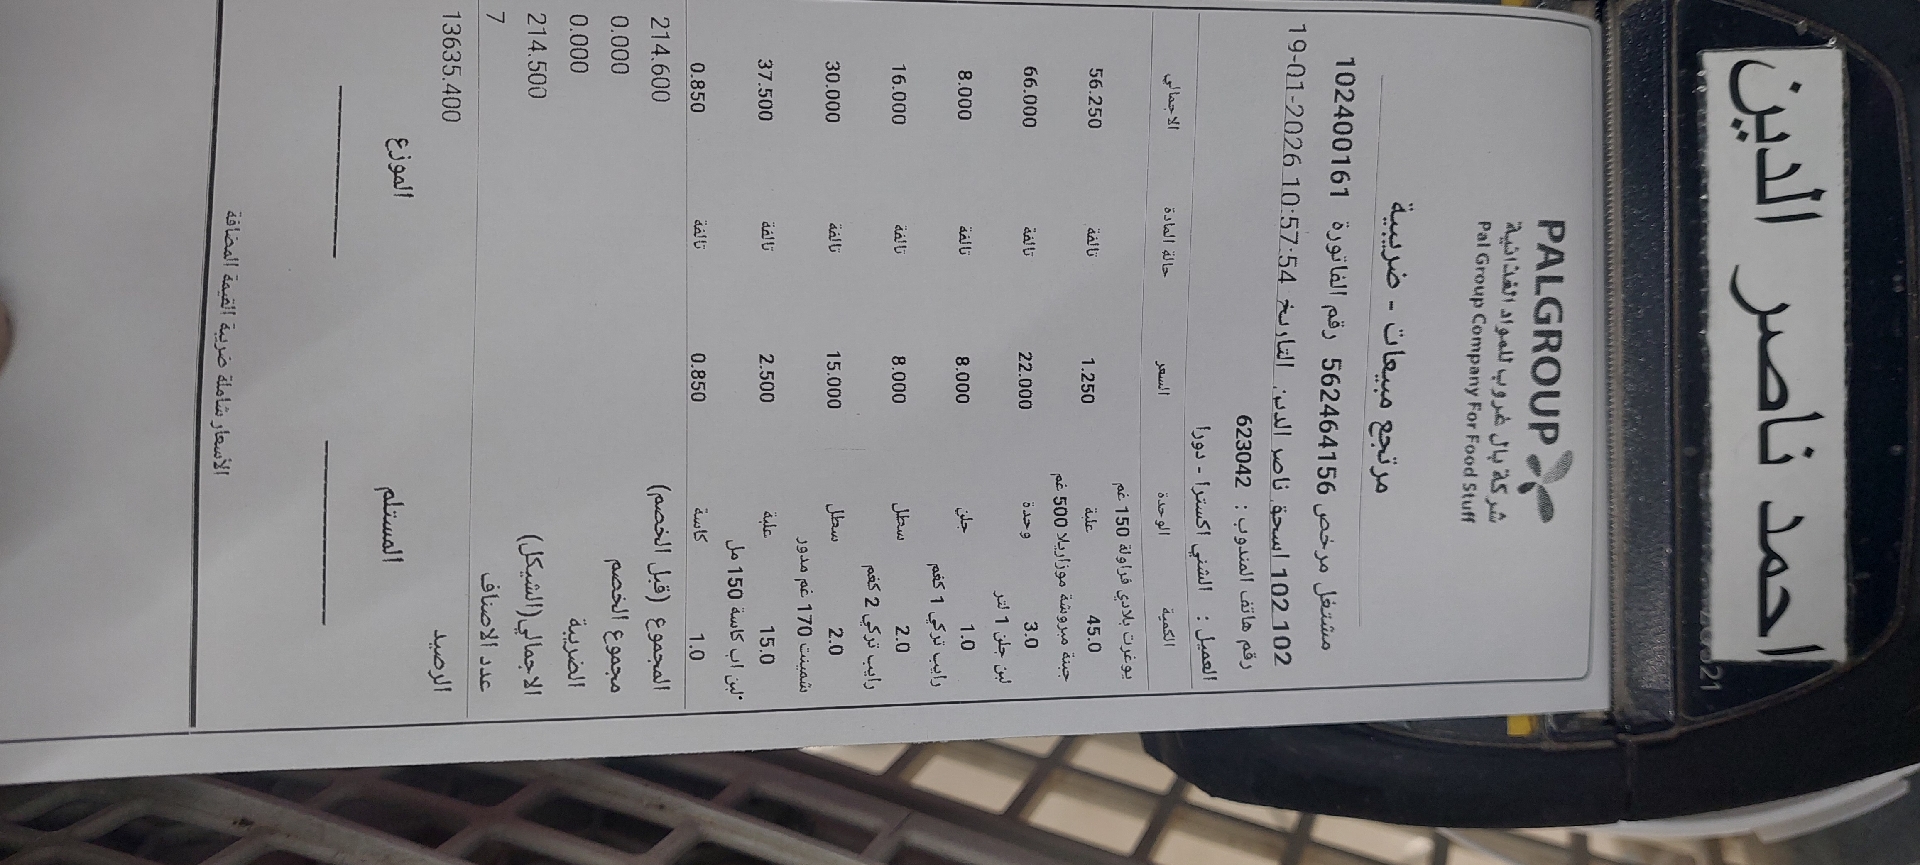 احمد ناصر الدين
PALGROUP
شركة بال غروب للمواد الغذائية
Pal Group Company For Food Stuff
مرتجع مبيعات - ضريبية
مشتغل مرخص 562464156 رقم الفاتورة 102400161
102 102 اسحق ناصر الدين التاريخ 19-01-2026 10:57:54
رقم هاتف المندوب : 623042
العميل : الشني اكسترا - دورا
الكمية الوحدة السعر حالة المادة الاجمالي
يوغرت بلادي فراولة 150 غم
45.0 علبة 1.250 تالفة 56.250
جبنة مبروشة موزاريلا 500 غم
3.0 وحدة 22.000 تالفة 66.000
لبن جلن 1 لتر
1.0 جلن 8.000 تالفة 8.000
رايب تركي 1 كغم
2.0 سطل 8.000 تالفة 16.000
رايب تركي 2 كغم
2.0 سطل 15.000 تالفة 30.000
شمينت 170 غم مدور
15.0 علبة 2.500 تالفة 37.500
*لبن اب كاسة 150 مل
1.0 كاسة 0.850 تالفة 0.850
المجموع (قبل الخصم) 214.600
مجموع الخصم 0.000
الضريبة 0.000
الاجمالي(الشيكل) 214.500
عدد الاصناف 7
الرصيد 13635.400
المستلم الموزع
الأسعار شاملة ضريبة القيمة المضافة